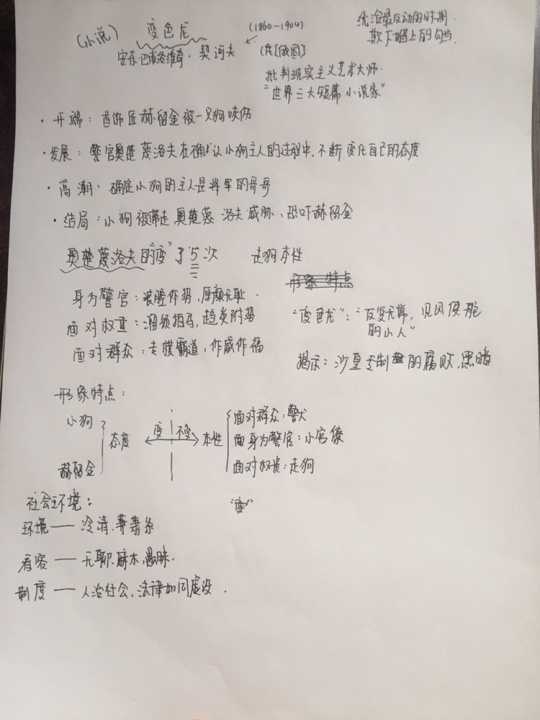 (小说) 变色龙 (1860-1904)
安东·巴甫洛维奇·契诃夫
(俄[俄国])
统治最反动的时期
欺下媚上的勾当
批判现实主义艺术大师
"世界三大短篇小说家"
·开端:首饰匠赫留金被一只狗咬伤
·发展:警官奥楚蔑洛夫在确认小狗主人的过程中,不断变化自己的态度
·高潮:确定小狗的主人是将军的哥哥
·结局:小狗被带走 奥楚蔑洛夫威胁、恐吓赫留金
奥楚蔑洛夫的"变"了5次 走狗本性
形象特点
身为警官:装腔作势,厚颜无耻.
面对权重:溜须拍马,趋炎附势
面对群众:专横霸道,作威作福
"变色龙":"反复无常,见风使舵的小人"
揭示:沙皇专制的腐败,黑暗
形象特点:
小狗
赫留金
态度 变 不变 本性
面对群众:警犬
面身为警官:小官僚
面对权贵:走狗
"变"
社会环境:
环境——冷清.萧条
看客——无聊.麻木,愚昧.
制度——人治社会,法律如同虚设.